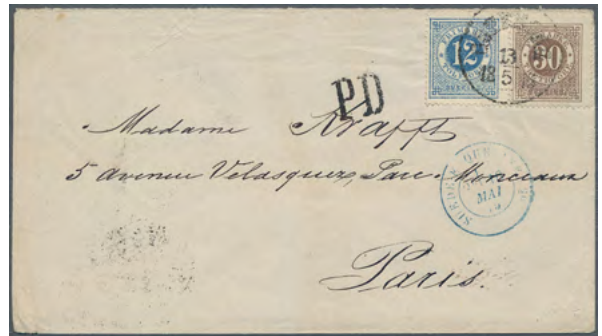 12
30
13
5
PD
Madame Krafft
5 avenue Velasquez, Parc Monceaux
SUEDE
MAI
Paris.